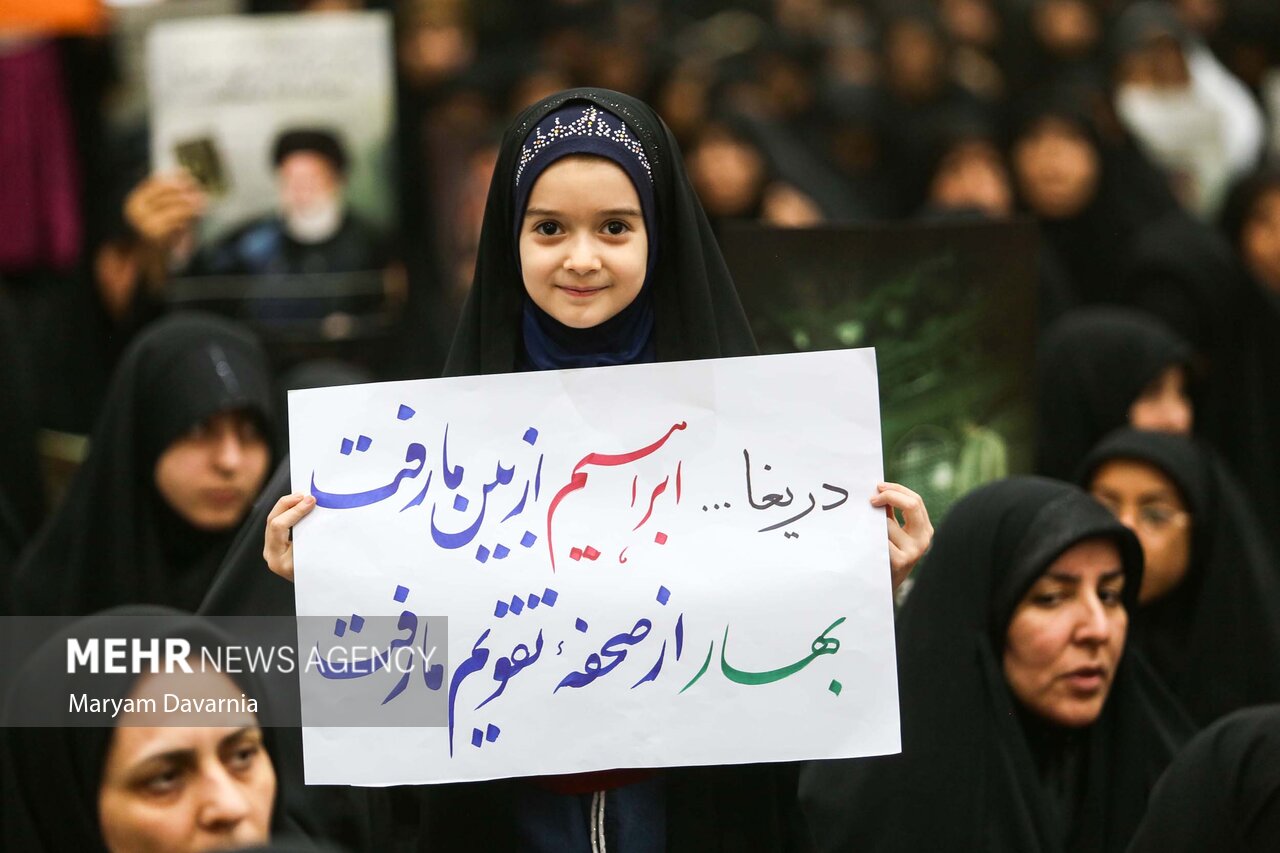 دریغا ... ابراهیم از بین ما رفت
بهار از صفحهٔ تقویم ما رفت
MEHR NEWS AGENCY
Maryam Davarnia